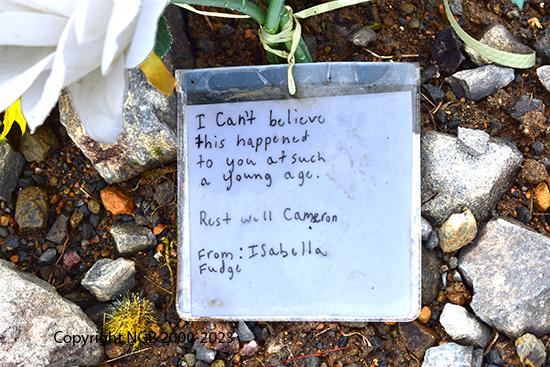 I Can't believe
this happened
to you at such
a young age.
Rest well Cameron
From: Isabella
Fudge
Copyright NGB 2000-2023